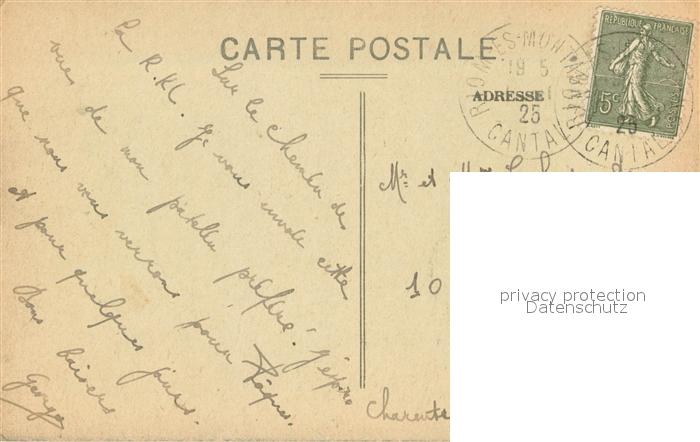 CARTE POSTALE
RÉPUBLIQUE FRANÇAISE
15c
RIOM-ES-MONTAGNES
19 5
25
CANTAL
ADRESSE
Sur le chemin de
la R.Kl. Je vous envoie cette
vues de mon patelin préféré. J'espère
que nous vous verrons pour Pâques.
et pour quelques jours.
Bons baisers
George
Mr et
10
Charente
privacy protection
Datenschutz